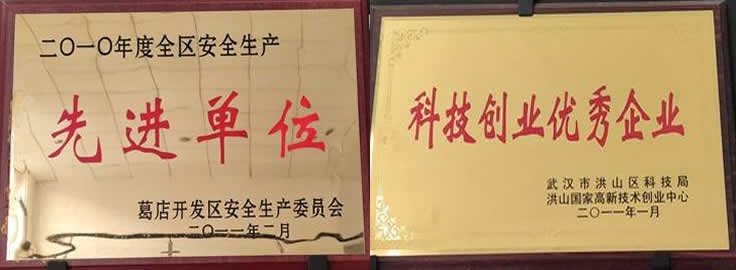 二〇一〇年度全区安全生产
先进单位
葛店开发区安全生产委员会
二〇一一年二月
科技创业优秀企业
武汉市洪山区科技局
洪山国家高新技术创业中心
二〇一一年一月